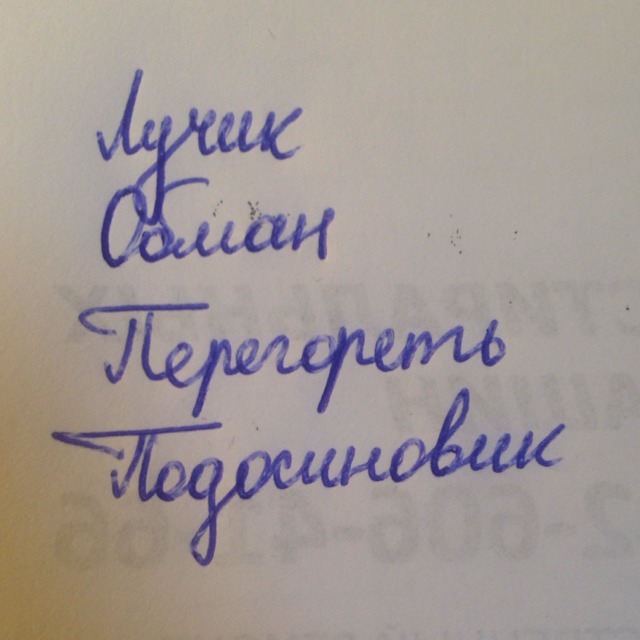 Лучик
Обман
Перегореть
Подосиновик